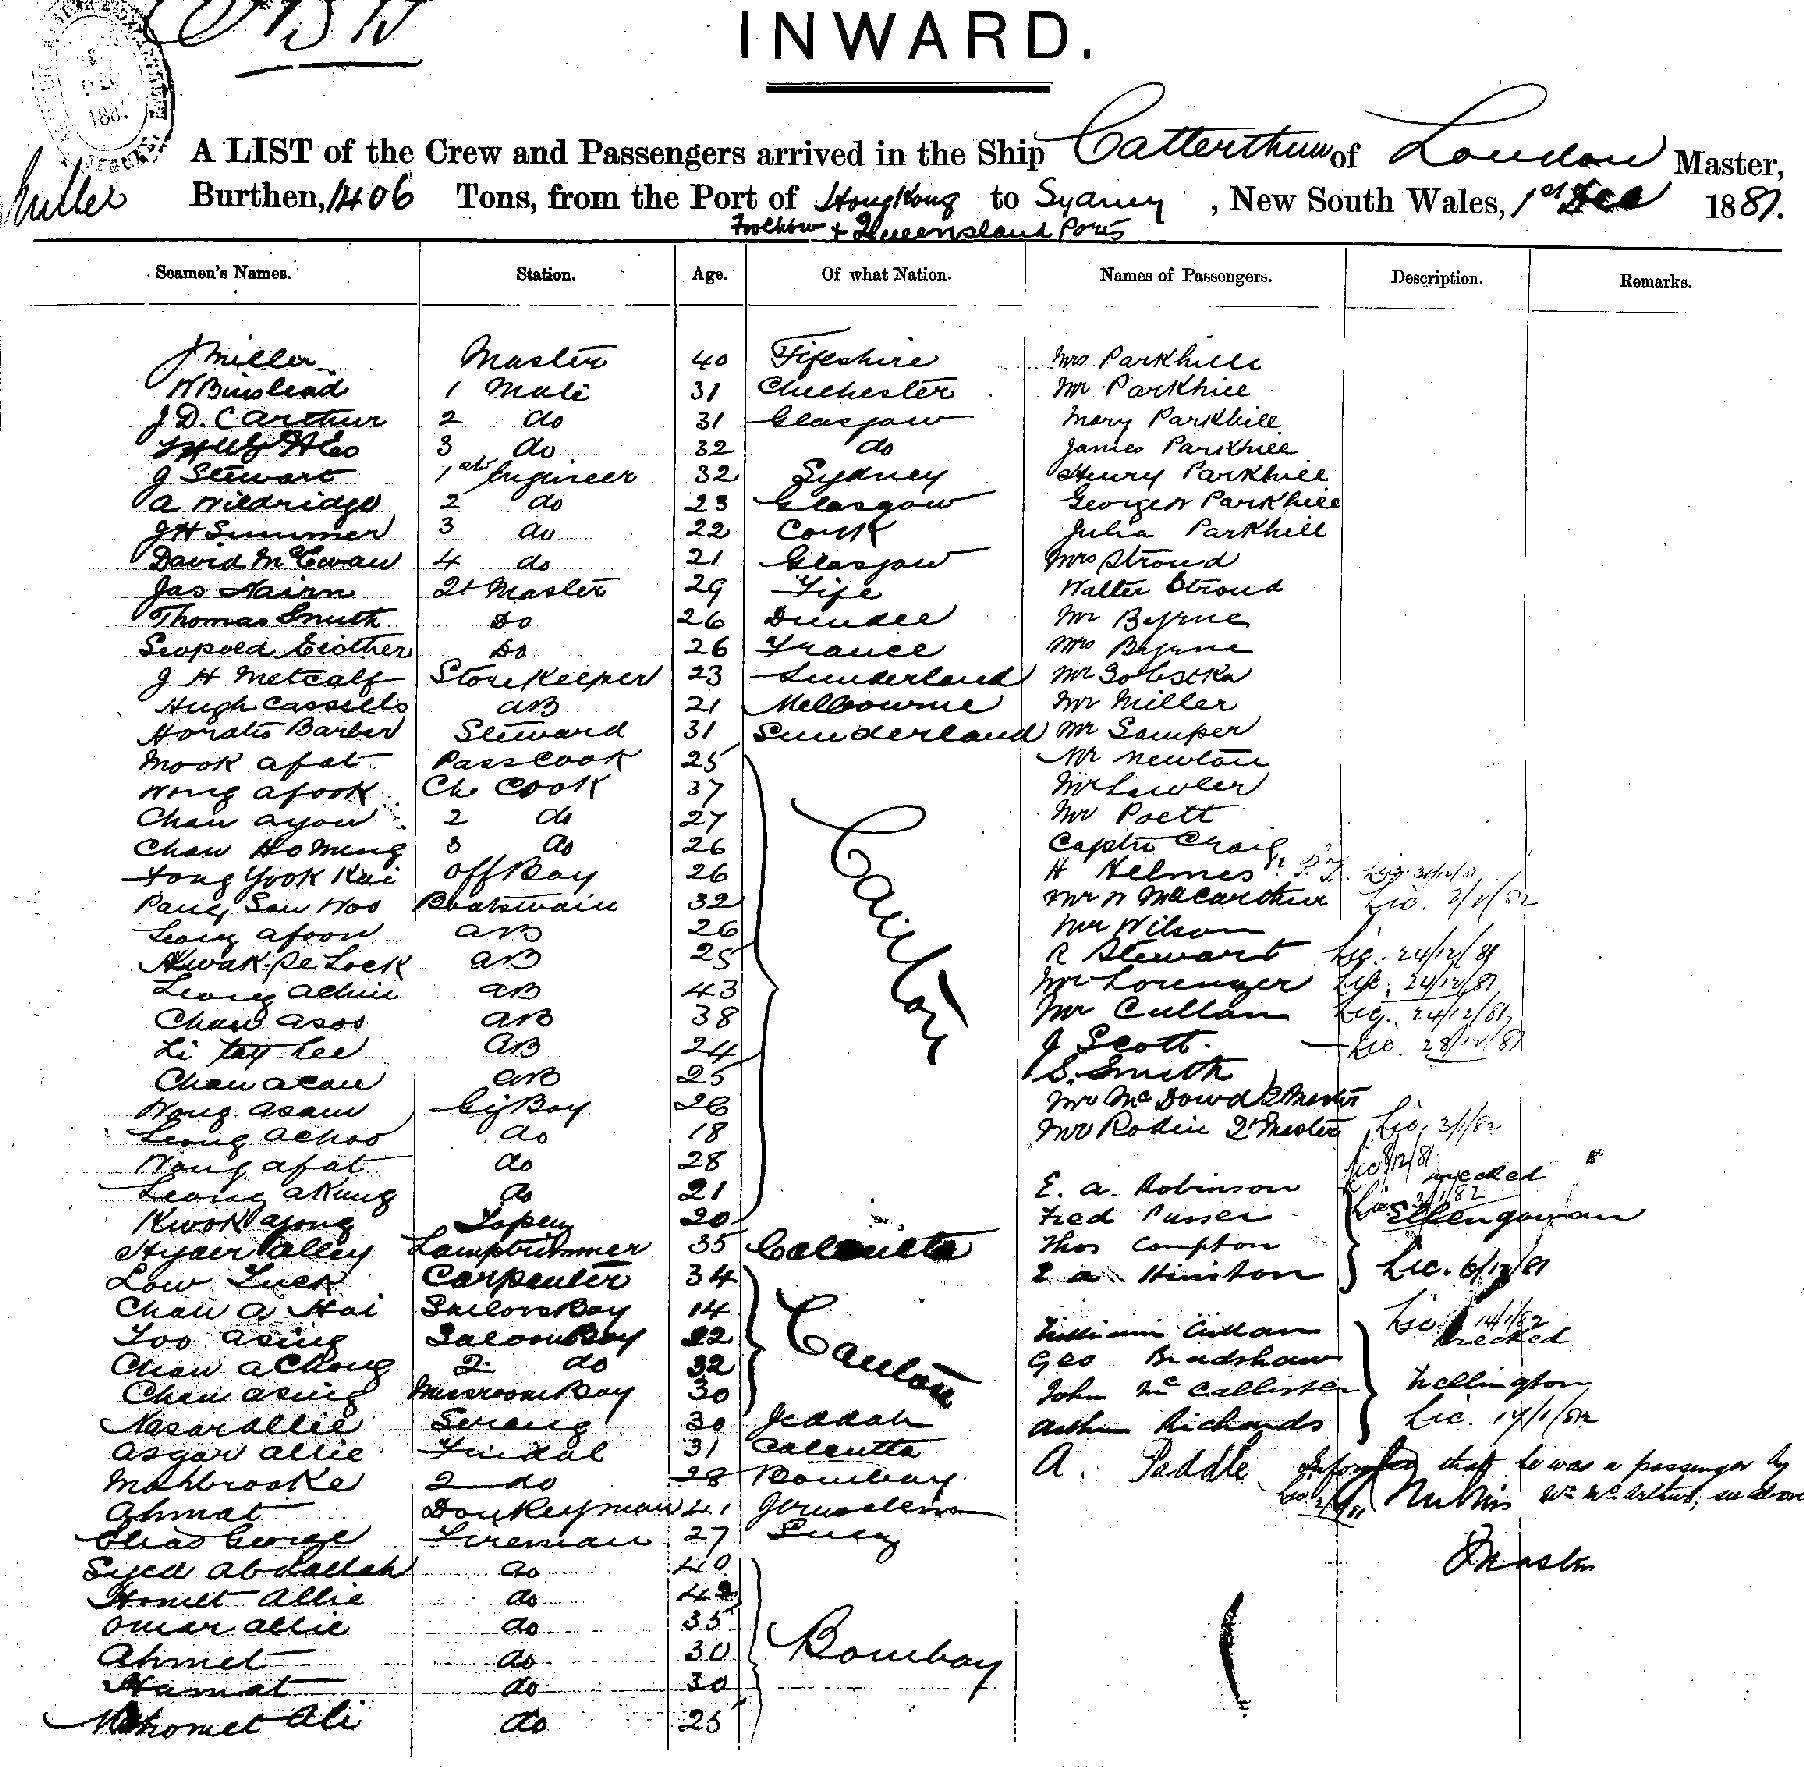 INWARD.
A LIST of the Crew and Passengers arrived in the Ship Catterthun of London Master,
Miller Burthen, 1406 Tons, from the Port of HongKong to Sydney, New South Wales, 1st Dec 1881.
Foochow + Queensland Ports
Seamen's Names. Station. Age. Of what Nation. Names of Passengers. Description. Remarks.
J Miller Master 40 Fifeshire Mrs Parkhill
W Binstead 1 Mate 31 Chichester Mr Parkhill
J D. C Arthur 2 do 31 Glasgow Mary Parkhill
3 do 32 do James Parkhill
J Stewart 1st Engineer 32 Sydney Henry Parkhill
A Wildridge 2 do 23 Glasgow George W Parkhill
J H Summer 3 do 22 Cork Julia Parkhill
David McEwan 4 do 21 Glasgow Mrs Stroud
Jas Nairn Qt Master 29 Fife Walter Stroud
Thomas Smith Do 26 Dundee Mr Byrne
Leopold Do 26 France Mrs Byrne
J H Metcalf StoreKeeper 23 Sunderland Mr
Hugh Cassells AB 21 Melbourne Mr Miller
Horatio Barber Steward 31 Sunderland Mr Samper
Mook Afat Pass Cook 25 Mr Newton
Wong Afook Ch Cook 37 Mr Lawler
Chan Ayow 2 do 27 Mr Poett
Chan Ho Ming 3 do 26 Captn Craig
Tong Yook Kai Off Boy 26 H Helmes
Pang San Woo Boatswain 32 Canton Mr W MacArthur Lic. 3/1/82
Leong Afoon AB 26 Mr Wilson
Kwak Se Lock AB 25 R Stewart Lic. 24/12/81
Leong Achin AB 43 Mr Lorenzer Lic. 24/12/81
Chan Asoo AB 38 Mr Cullan Lic. 24/12/81
Li Tay Lee AB 24 J Scott. Lic. 28/12/81
Chan Acan AB 25 S. Smith
Wong Asam Boy 26 Mr McDowd Qt Master
Leong Achoo do 18 Mr Rodin Qt Master Lic. 3/1/82
Wong Afat do 28
Leong Akung do 21 E. A. Robinson wrecked
Kwok Ayong 20 Fred Passer Ellengowan
Hyder Alley Lamptrimmer 35 Calcutta Thos Compton
Low Luck Carpenter 34 E A Hinston Lic. 6/12/81
Chan A Hai Sailors Boy 14
Loo Asing Saloon Boy 22 Canton William Cullan Lic. 14/1/82 wrecked
Chan Achong 2 do 32 Geo Bradshaw
Chan Asing Messroom Boy 30 John McCallister Wellington
Nasarallie Serang 30 Jeddah Arthur Richards Lic. 14/1/82
Asgar Allie Tindal 31 Calcutta
Mahbrooke 2 do 28 Bombay A. Paddle that he was a passenger by
Ahmat Donkeyman 41 Jerusalem
Elias George Fireman 27 Suez
Syed Abdallah do 40 Master
Homet Allie do 42
Omar Allie do 35
Ahmet do 30 Bombay
Hamat do 30
Mahomet Ali do 25